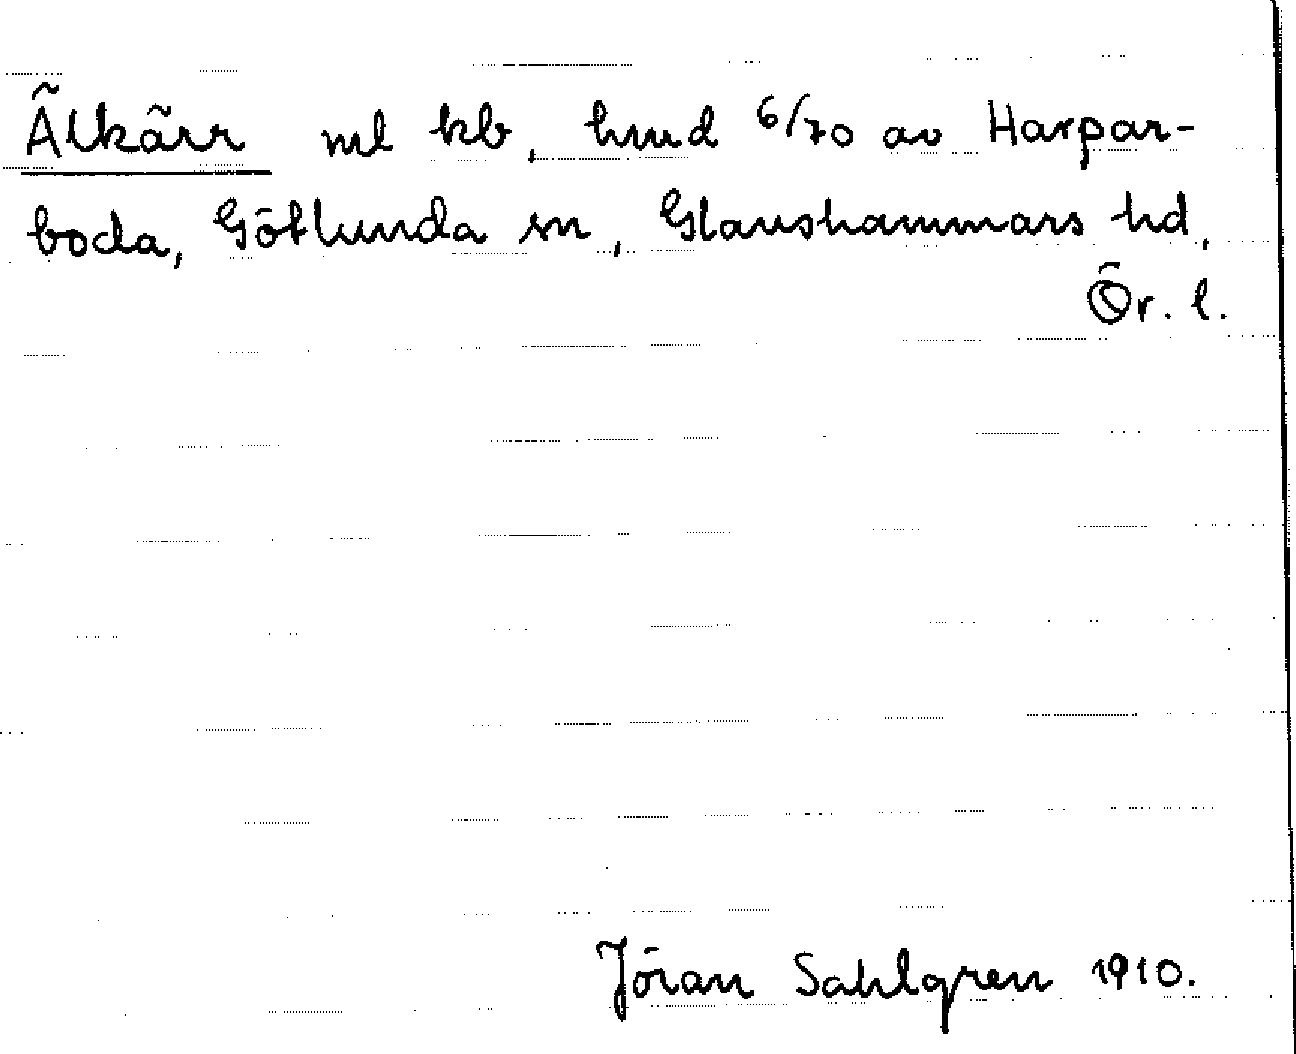 Älkärr ml kb, hmd 6/70 av Harpar-
boda, Götlunda sn, Glanshammars hd,
Ör. l.
Jöran Sahlgren 1910.